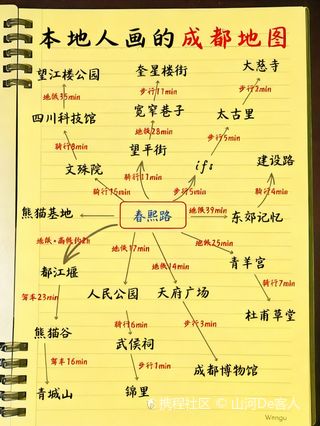 本地人画的成都地图
望江楼公园
奎星楼街
大慈寺
地铁35min
步行11min
步行2min
四川科技馆
宽窄巷子
太古里
骑行8min
地铁28min
步行5min
文殊院
望平街
ifs
建设路
骑行15min
骑行11min
步行5min
骑行4min
熊猫基地
春熙路
地铁39min
东郊记忆
地铁·高铁约2h
地铁17min
地铁14min
地铁25min
都江堰
青羊宫
人民公园
天府广场
驾车23min
骑行6min
步行3min
骑行7min
熊猫谷
武侯祠
杜甫草堂
驾车16min
步行1min
成都博物馆
青城山
锦里
携程社区 © 山河De客人
Wengu